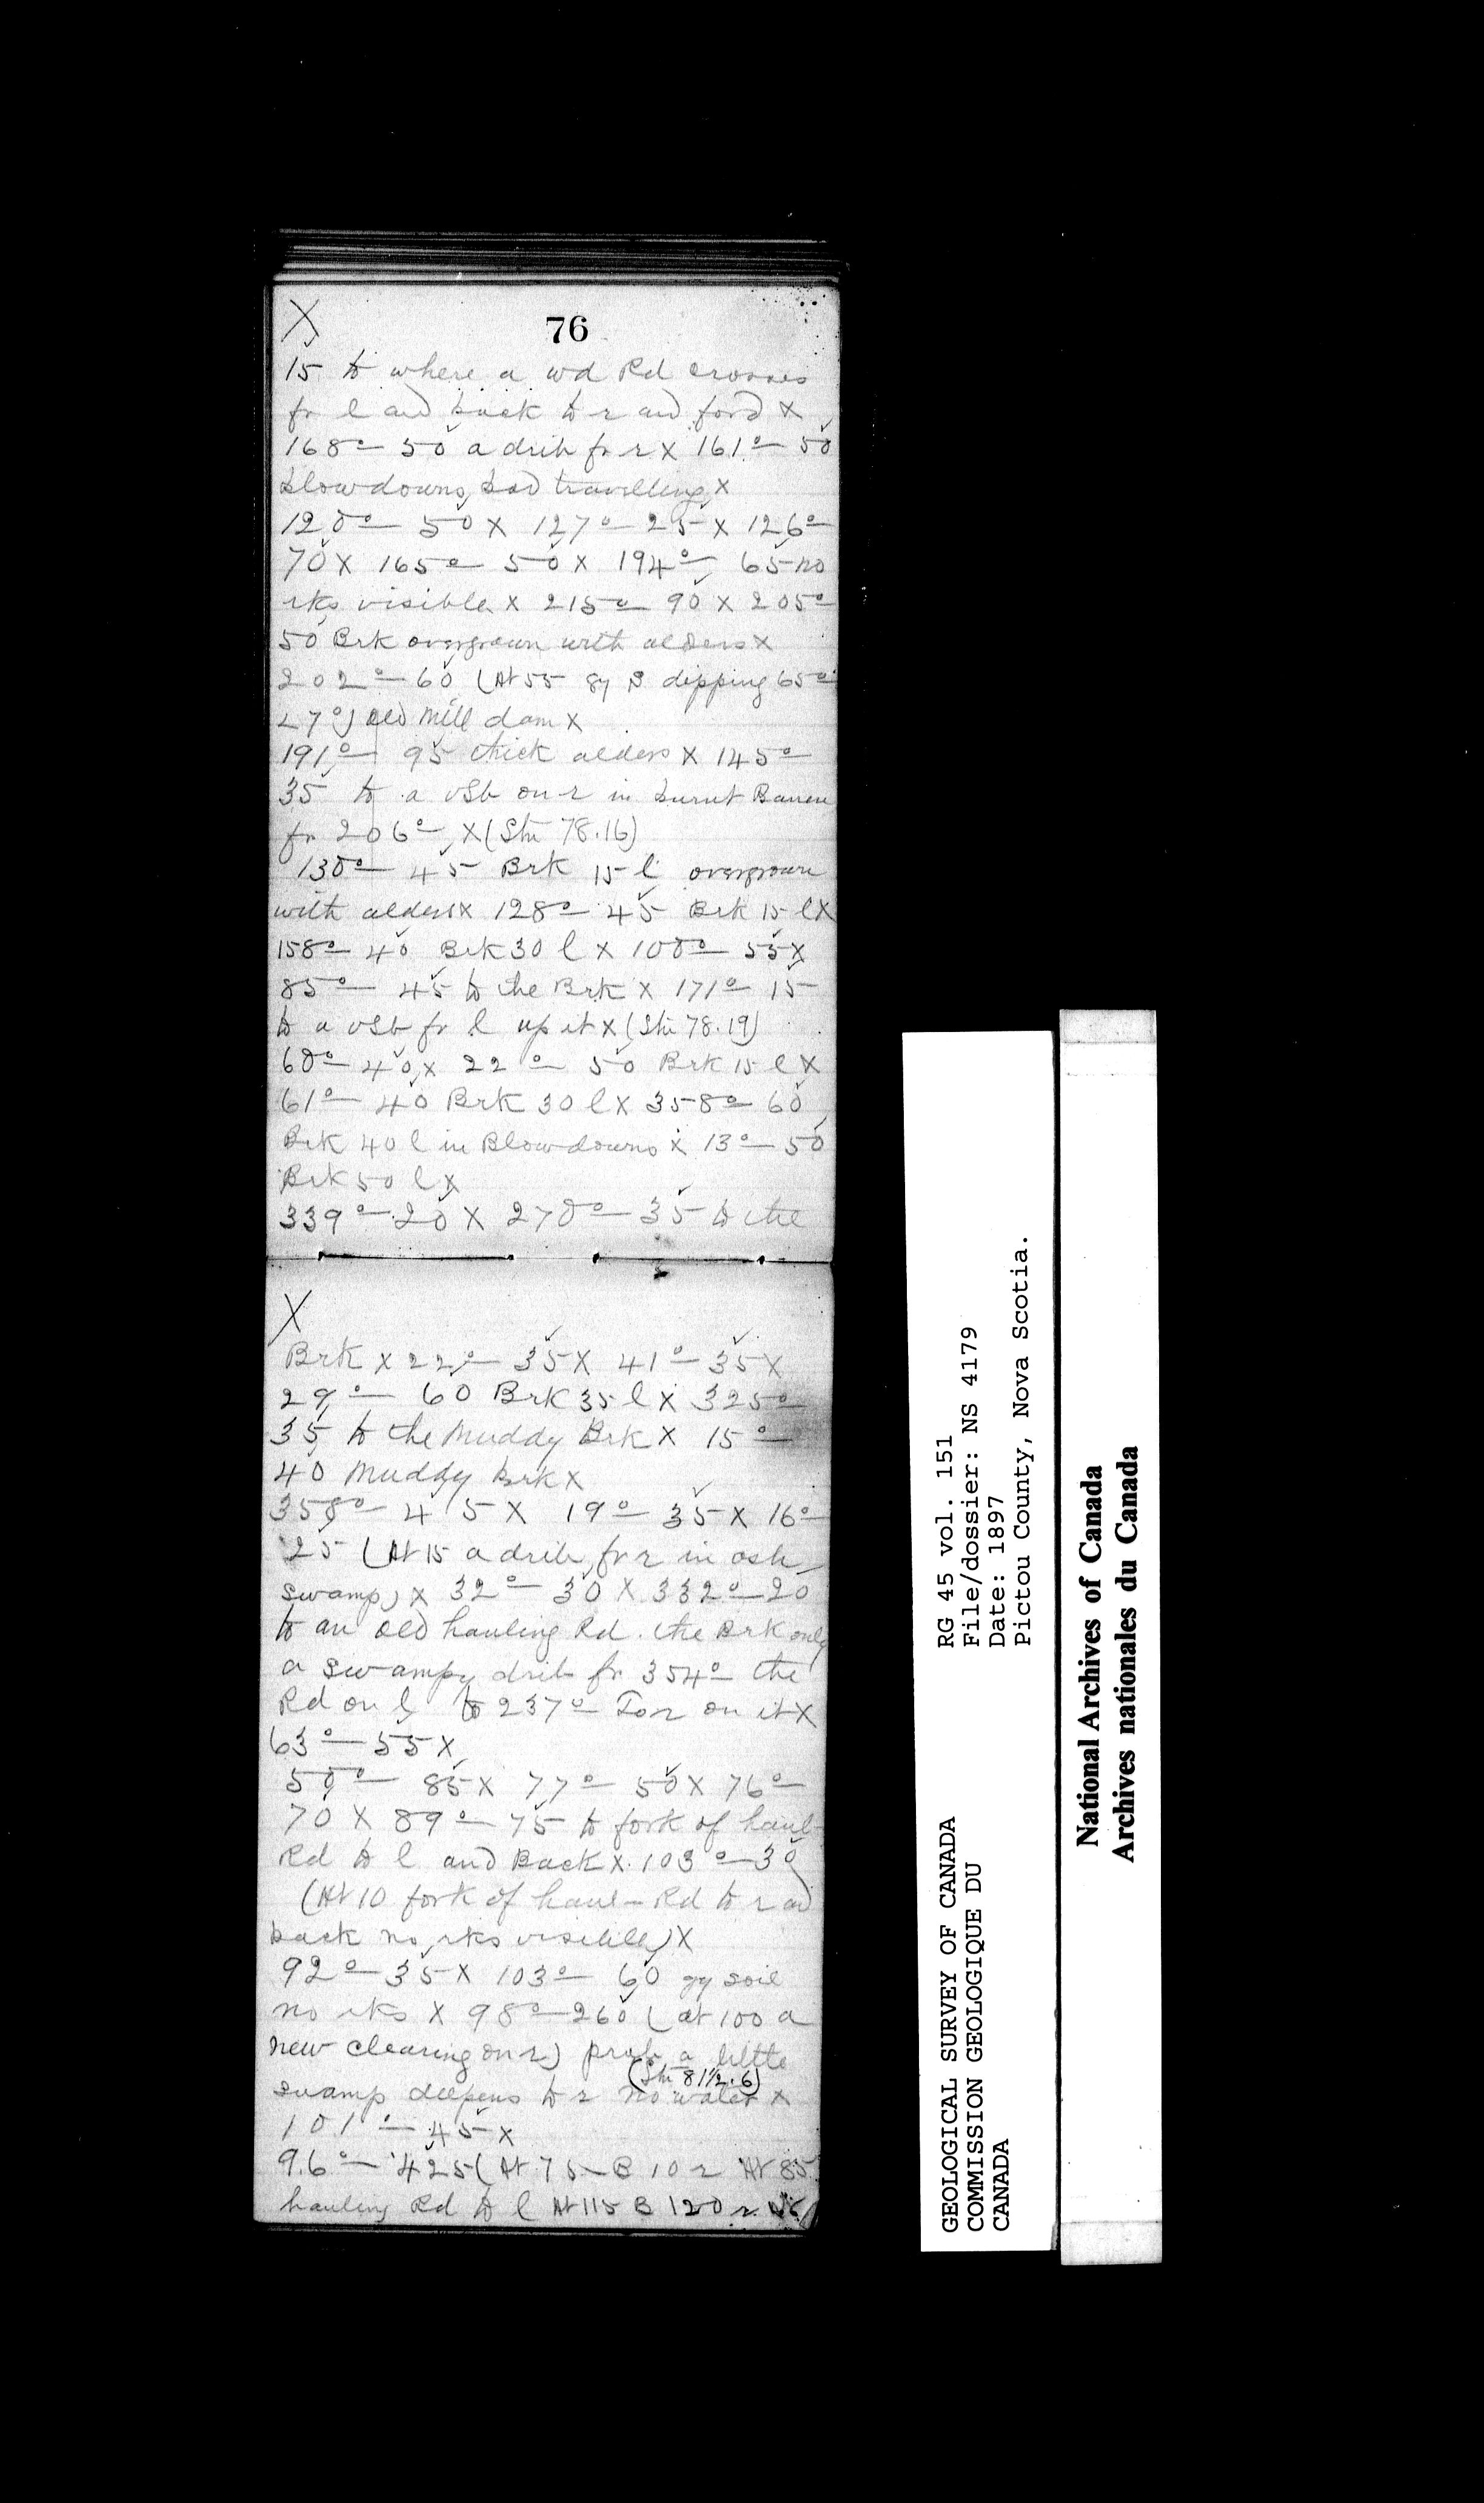 X
76
15 to where a wd Rd crosses
fr l and back to r and ford X
168° — 50 a drib fr r X 161° — 50
blowdowns, bad travelling X
120° — 50 X 127° — 25 X 126° —
70 X 165° — 50 X 194° — 65 no
rks visible X 215° — 90 X 205° —
50 Brk overgrown with alders X
202° — 60 (At 55 gy S dipping 65°
∠7°) old mill dam X
191° — 95 thick alders X 145° —
35 to a vSb on r in burnt Barren
fr 206° — X (Stn 78.16)
130° — 45 Brk 15 l overgrown
with alders X 128° — 45 Brk 15 l X
158° — 40 Brk 30 l X 100° — 55 X
85° — 45 to the Brk X 171° — 15
to a vSb fr l up it X (Stn 78.19)
60° — 40 X 22° — 50 Brk 15 l X
61° — 40 Brk 30 l X 358° — 60
Brk 40 l in Blowdowns X 13° — 50
Brk 50 l X
339° — 20 X 270° — 35 to the
X
Brk X 22° — 35 X 41° — 35 X
29° — 60 Brk 35 l X 325° —
35 to the Muddy Brk X 15° —
40 Muddy brk X
358° — 45 X 19° — 35 X 16° —
25 (At 15 a drib fr r in ash
swamp) X 32° — 30 X 332° — 20
to an old hauling Rd. the Brk only
a swampy drib fr 354° — the
Rd on l to 237° — To r on it X
63° — 55 X
50° — 85 X 77° — 50 X 76° —
70 X 89° — 75 to fork of haul-
Rd to l and Back X 103° — 30
(At 10 fork of haul- Rd to r and
back no rks visible) X
92° — 35 X 103° — 60 gy soil
no rks X 98° — 260 (at 100 a
new clearing on r) prob a little
(Stn 81½.6)
swamp deepens to r no water X
101° — 45 X
96° — 425 (At 75 — B 10 r At 85
hauling Rd to l At 115 B 120 r
GEOLOGICAL SURVEY OF CANADA
COMMISSION GEOLOGIQUE DU
CANADA
RG 45 vol. 151
File/dossier: NS 4179
Date: 1897
Pictou County, Nova Scotia.
National Archives of Canada
Archives nationales du Canada